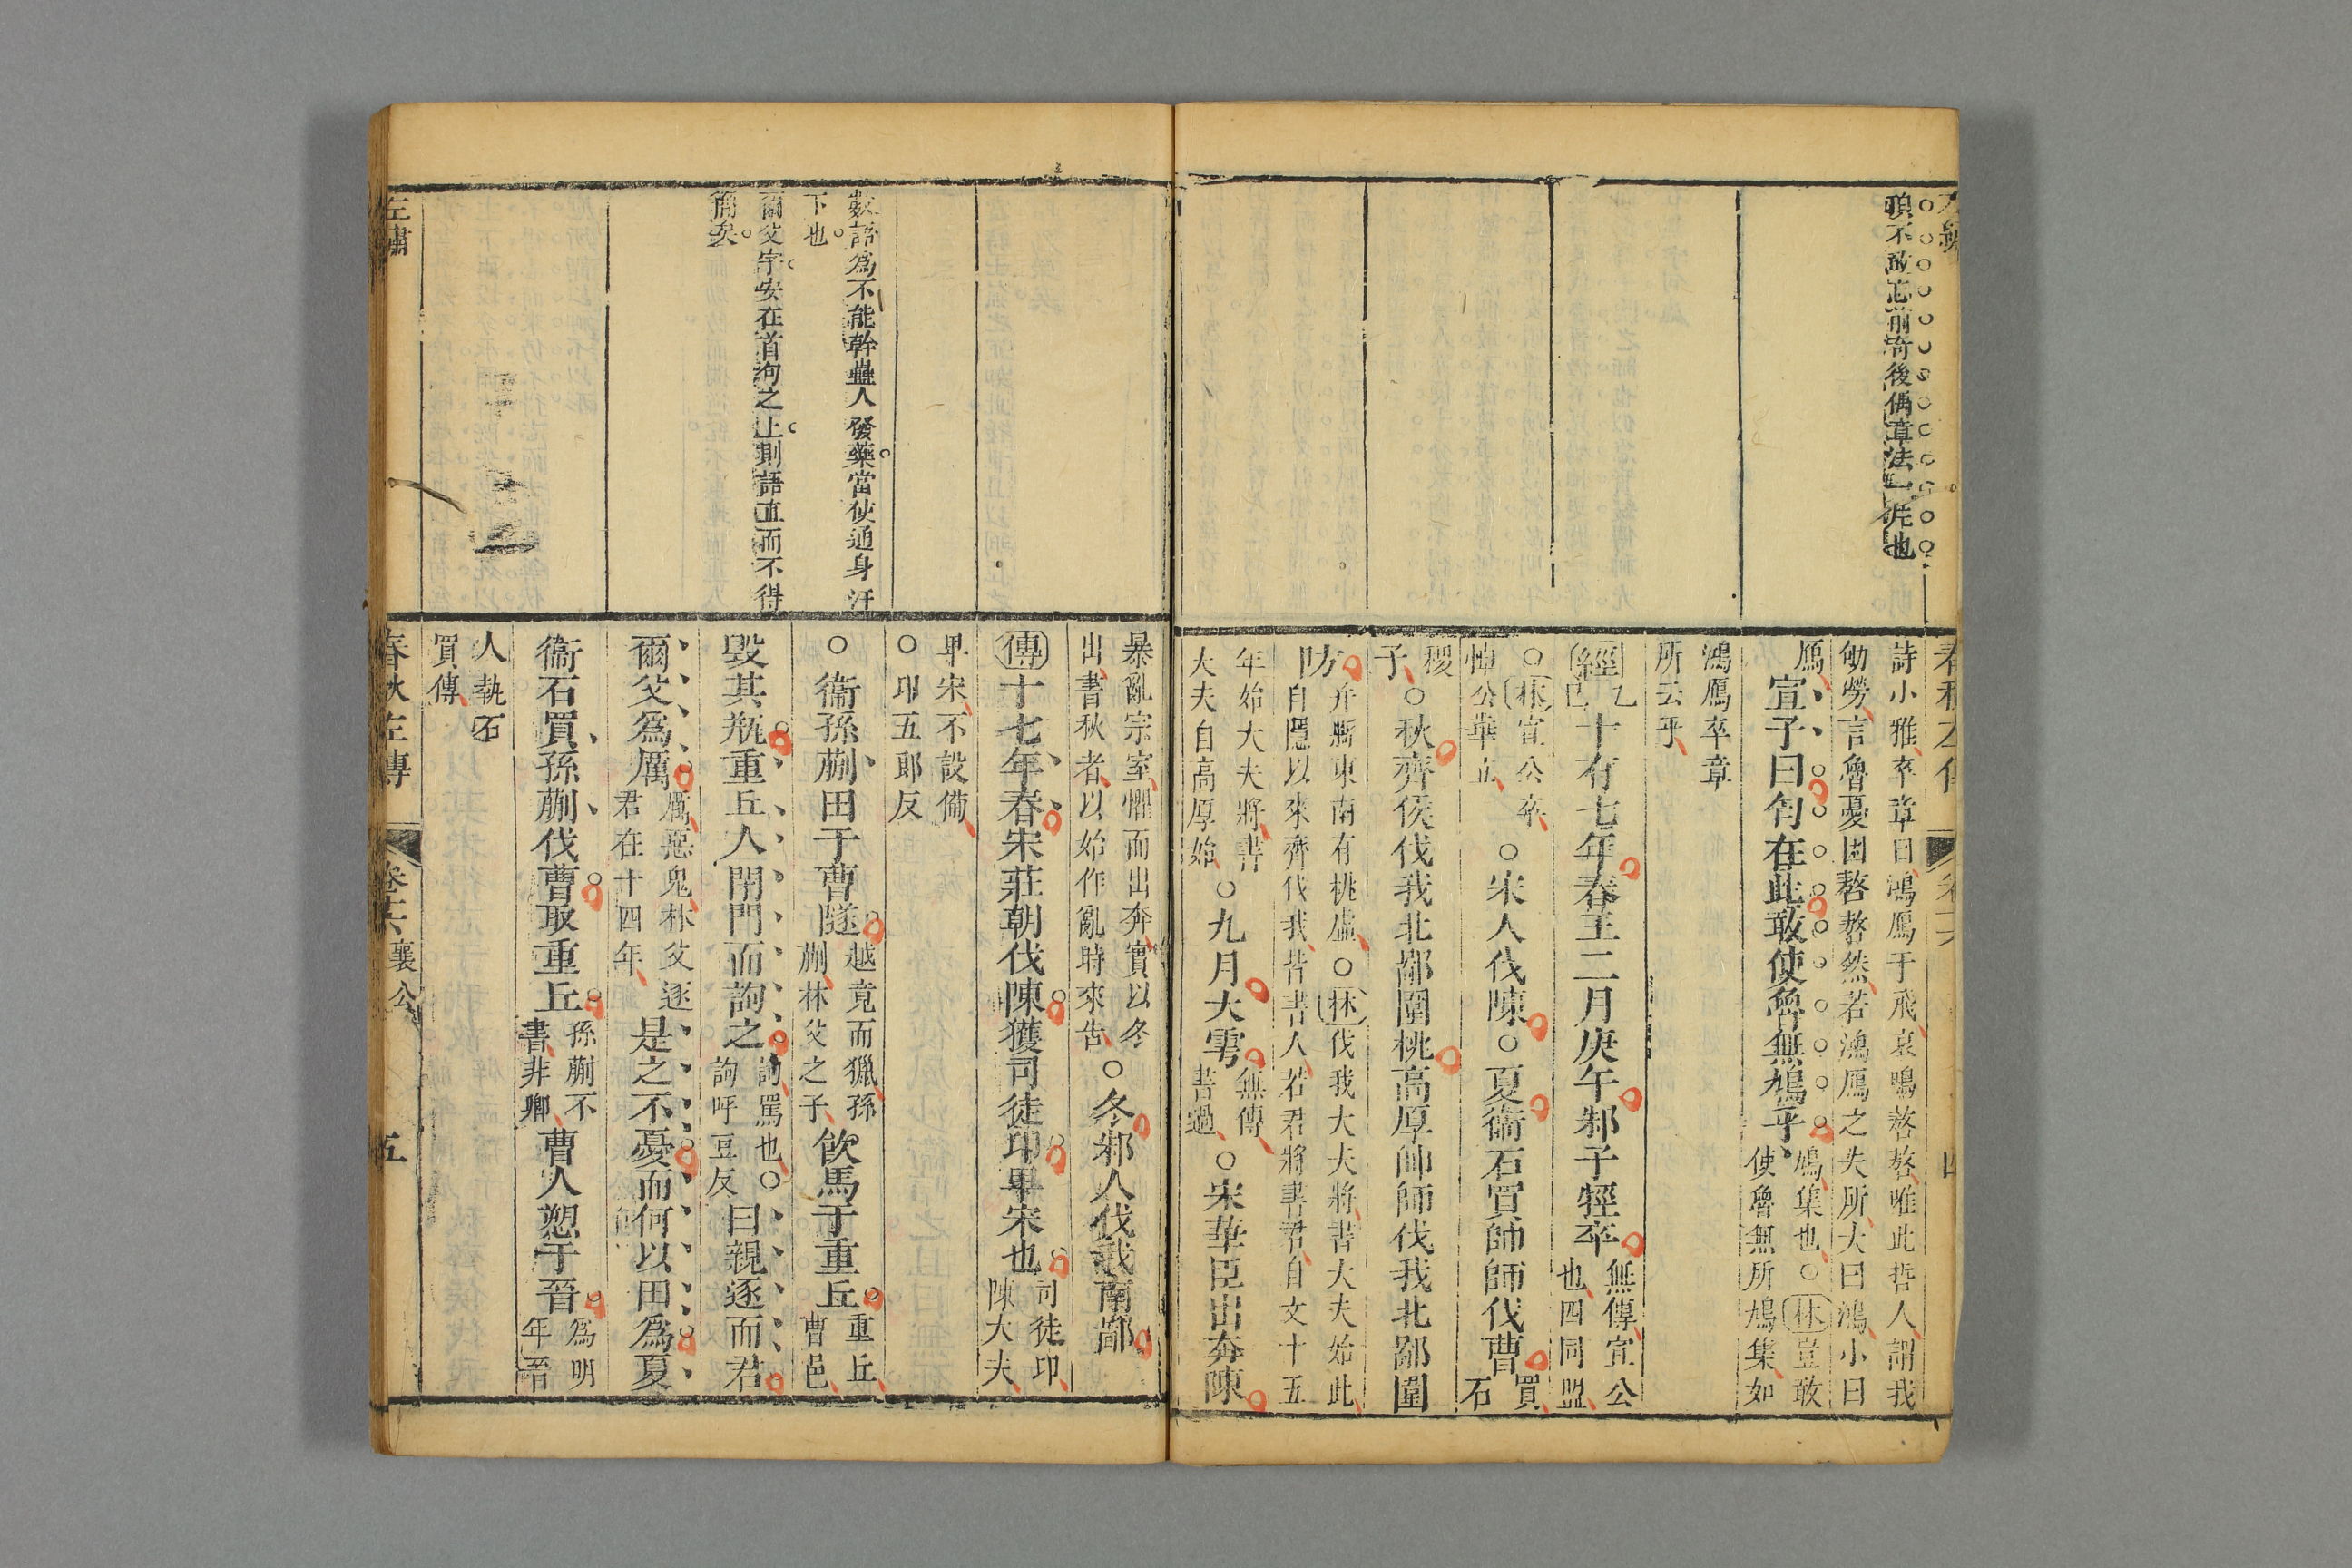 頃不敢忘前猗後偶章法一片也
詩小雅卒章曰鴻鴈于飛哀鳴嗸嗸唯此哲人謂我
劬勞言魯憂困嗸嗸然若鴻鴈之失所大曰鴻小曰
鴈宣子曰匄在此敢使魯無鳩乎鳩集也○林豈敢
使魯無所鳩集如
鴻鴈卒章
所云乎
經乙巳十有七年春王二月庚午邾子牼卒無傳宣公
也四同盟
○林宣公卒
悼公華立○宋人伐陳○夏衞石買帥師伐曹買石
稷子○秋齊侯伐我北鄙圍桃高厚帥師伐我北鄙圍
防弁縣東南有桃虛○林伐我大夫將書大夫始此
自隱以來齊伐我皆書人若君將書君自文十五
年始大夫將書
大夫自高厚始○九月大雩無傳
書過○宋華臣出奔陳
暴亂宗室懼而出奔實以冬
出書秋者以始作亂時來告○冬邾人伐我南鄙
傳十七年春宋莊朝伐陳獲司徒卬卑宋也司徒卬
陳大夫
卑宋不設備
○卬五郎反
數語爲不能幹蠱人發藥當使通身汗
下也
○衞孫蒯田于曹隧越竟而獵孫
蒯林父之子飲馬于重丘重丘
曹邑
爾父字安在首詢之上則語直而不得
簡矣
毀其瓶重丘人閉門而詢之詢罵也○
詢呼豆反曰親逐而君
爾父爲厲厲惡鬼林父逐
君在十四年是之不憂而何以田爲夏
衞石買孫蒯伐曹取重丘孫蒯不
書非卿曹人愬于晉爲明
年晉
人執石
買傳
左繡
春秋左傳
卷十六 襄公
五